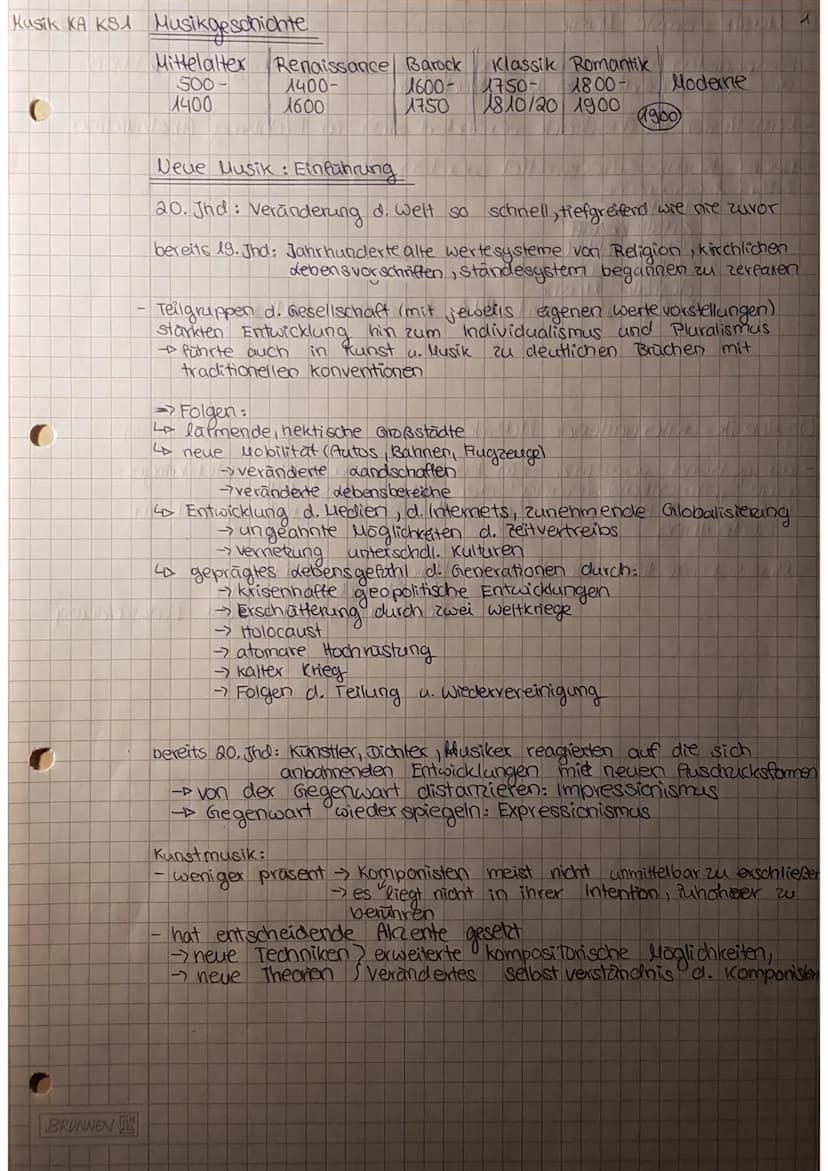 Musik KA KS1 Musikgeschichte 1
Mittelalter Renaissance Barock Klassik Romantik
500- 1400- 1600- 1750- 1800- Moderne
1400 1600 1750 1810/20 1900 1900
Neue Musik: Einführung
20. Jhd: Veränderung d. Welt so schnell, tiefgreifend wie nie zuvor
bereits 19. Jhd: Jahrhunderte alte wertesysteme von Religion, kirchlichen
Lebensvorschriften, Ständesystem begannen zu zerfallen
- Teilgruppen d. Gesellschaft (mit jeweils eigenen wertevorstellungen)
stärkten Entwicklung hin zum Individualismus und Pluralismus
→ führte auch in Kunst u. Musik zu deutlichen Brüchen mit
traditionellen Konventionen
⇒ Folgen:
↳ lärmende, hektische Großstädte
↳ neue Mobilität (Autos, Bahnen, Flugzeuge)
→ veränderte Landschaften
→ veränderte Lebensbereiche
↳ Entwicklung d. Medien, d. Internets, zunehmende Globalisierung
→ ungeahnte Möglichkeiten d. Zeitvertreibs
→ vernetzung unterschdl. Kulturen
↳ geprägtes Lebensgefühl d. Generationen durch:
→ krisenhafte geopolitische Entwicklungen
→ Erschütterung durch zwei Weltkriege
→ Holocaust
→ atomare Hochrüstung
→ Kalter Krieg
→ Folgen d. Teilung u. Wiedervereinigung
bereits 20. Jhd: Künstler, Dichter, Musiker reagierten auf die sich
anbahnenden Entwicklungen mit neuen Ausdrucksformen
→ von der Gegenwart distanzieren: Impressionismus
→ Gegenwart wiederspiegeln: Expressionismus
Kunstmusik:
- weniger präsent → Komponisten meist nicht unmittelbar zu erschließen
→ es liegt nicht in ihrer Intention, Zuhörer zu
berühren
- hat entscheidende Akzente gesetzt
→ neue Techniken } erweiterte kompositorische Möglichkeiten,
→ neue Theorien } verändertes selbstverständnis d. Komponisten
BRUNNEN